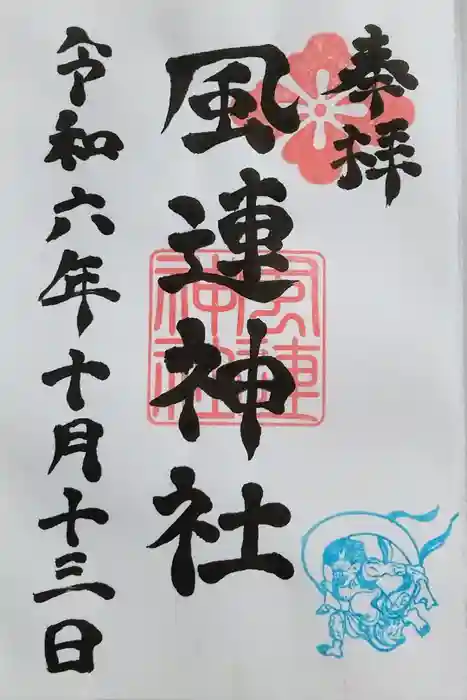 奉拝
風連神社
風連神社
令和六年十月十三日